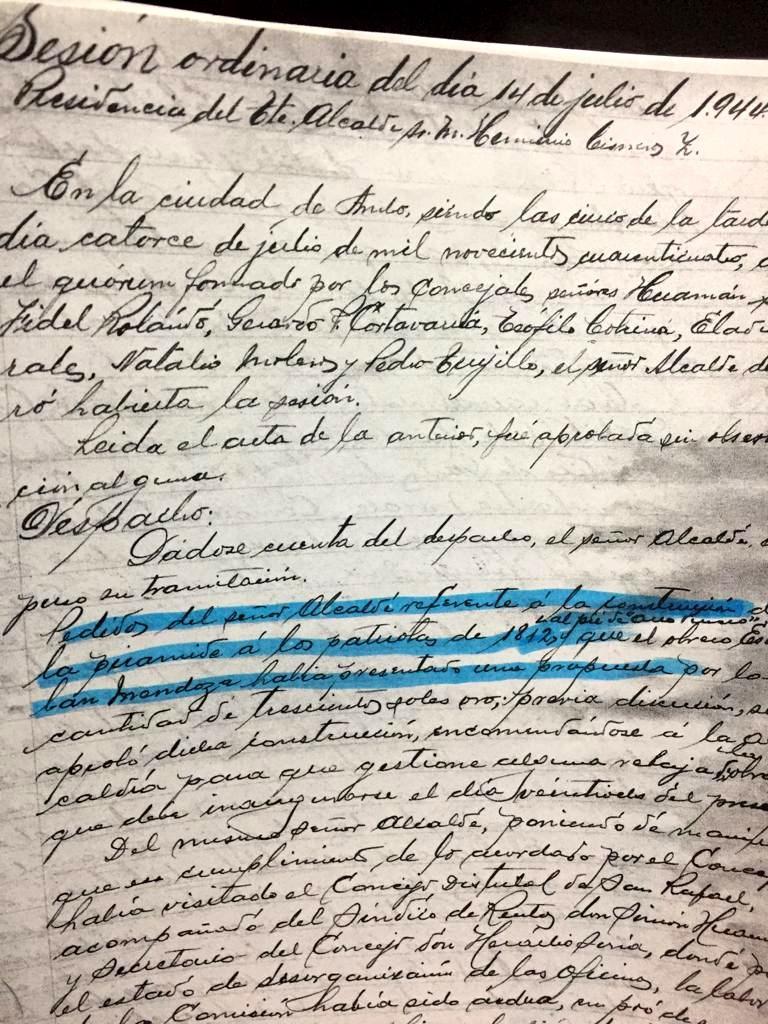 Sesión ordinaria del día 14 de julio de 1.944.
Presidencia del Tte. Alcalde sr. m. Herminio Cisneros Z.
En la ciudad de Ambo, siendo las cinco de la tarde
día catorce de julio de mil novecientos cuarenticuatro,
el quórum formado por los Concejales señores Huamán
Fidel Rolando, Gerardo P. Cortavarría, Teófilo Cotrina, Eladi
rales, Natalio y Pedro Trujillo, el señor Alcalde de
ró habierta la sesión.
Leida el acta de la anterior, fué aprobada sin obser
ción alguna.
Despacho:
Dádose cuenta del despacho, el señor Alcalde,
puso su tramitación.
Pedidos del señor Alcalde referente á la construcción d
al pié de
la piramide á los patriotas de 1812, y que el obrero Es
ban Mendoza habia presentado una propuesta por la
cantidad de trescientos soles oro; previa discusión, se
aprobó dicha construcción, encomendándose á la a
caldía para que gestione alguna rebaja, obra
que debe inaugurarse el día veintiocho del prese
Del mismo señor Alcalde, poniendo de manifi
que en cumplimiento de lo acordado por el Concej
había visitado el Concejo Distrital de San Rafael,
acompañado del Síndico de Rentas don Simón Huam
y Secretario del Concejo don Heraclio Soria, donde p
el estado de desorganización de las Oficinas, la labor
la Comisión había sido árdua, en pró de